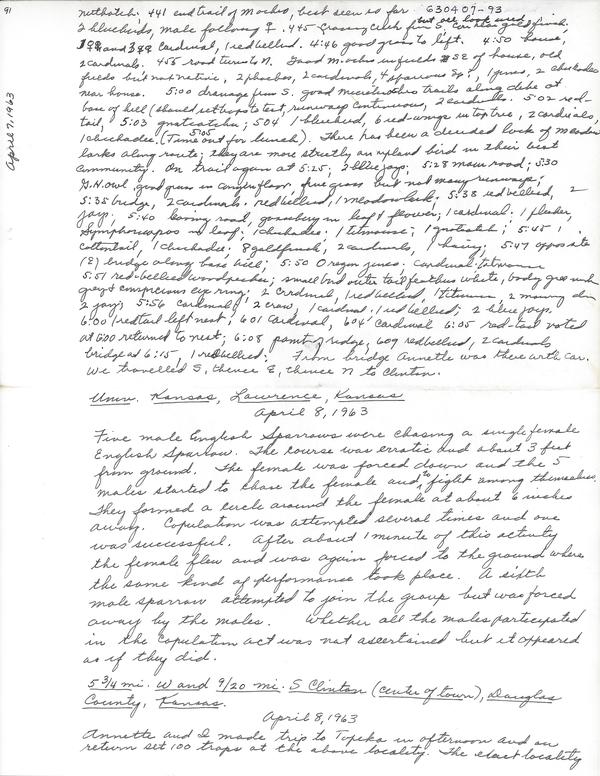 91
April 7, 1963
630407-93
nuthatch; 441 end trail of Mochro, best seen so far
2 bluebirds, male following ♀. 445 crossing creek from S, but ok look used, goldfinch,
1 ♀♀ and 3 ♀♀ cardinal, 1 red bellied. 4:46 good grass to left. 4:50 house,
2 cardinals. 455 road turns to N. Good M. ochro in fields SE of house, old
fields but not native, 2 phoebes, 2 cardinals, 4 sparrows sp?, 1 junco, 2 chickadees
near house. 5:00 drainage from S. good microtus ochro trails along dike at
base of hill (should set traps to test, runways continuous, 2 cardinals. 5:02 red-
tail, 5:03 gnatcatcher; 504 1 bluebird, 6 red-wings in top tree, 2 cardinals,
1 chickadee. (Time out for lunch) 5:05. There has been a decided lack of Meadow
larks along route; they are more strictly an upland bird in their best
community. On trail again at 5:25; 2 blue jays; 5:28 main road; 5:30
G.H. owl, good grass in canyon floor, fine grass but not many runways;
5:35 bridge, 2 cardinals. red bellied, 1 meadowlark; 5:38 red bellied, 2
jays; 5:40 leaving road, gooseberry in leaf & flower; 1 cardinal; 1 flicker,
Symphoricarpos in leaf; 1 chickadee; 1 titmouse; 1 gnatcatch; 5:45 1
cottontail, 1 chickadee. 8 goldfinch; 2 cardinals, 1 hairy; 5:47 opposite
(E) bridge along base hill; 5:50 Oregon junco, cardinal, titmouse
5:51 red-bellied woodpecker; small bird outer tail feathers white, body green
grey & conspicuous eye ring; 2 cardinal, 1 red bellied, 1 titmouse, 2 mourning dove
2 jays; 5:56 cardinal; 2 crow, 1 cardinal; 1 red bellied; 2 blue jays.
6:00 1 redtail left nest; 601 cardinal, 604 cardinal 6:05 red-tail noted
at 6:00 returned to nest; 6:08 point of ridge, 609 red bellied, 2 cardinals
bridge at 6:15, 1 red bellied. From bridge Annette was there with car.
We travelled S, thence E, thence N to Clinton.
Univ. Kansas, Lawrence, Kansas
April 8, 1963
Five male English Sparrows were chasing a single female
English Sparrow. The course was erratic and about 3 feet
from ground. The female was forced down and the 5
males started to chase the female and to fight among themselves.
They formed a circle around the female at about 6 inches
away. Copulation was attempted several times and one
was successful. After about 1 minute of this activity
the female flew and was again forced to the ground where
the same kind of performance took place. A sixth
male sparrow attempted to join the group but was forced
away by the males. Whether all the males participated
in the copulation act was not ascertained but it appeared
as if they did.
5 3/4 mi. W and 9/20 mi. S Clinton (center of town), Douglas
County, Kansas.
April 8, 1963
Annette and I made trip to Topeka in afternoon and on
return set 100 traps at the above locality. The exact locality